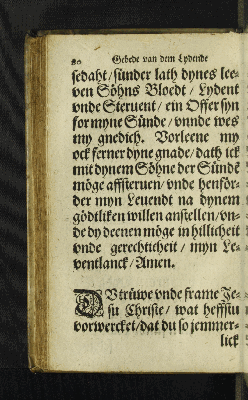 80 Gebede van dem Lydende
sedaht / sünder lath dynes lee-
ven Söhns Bloedt / Lydent
vnde Steruent / ein Offer syn
for myne Sünde / vnnde wes
my gnedich. Vorleene my
ock ferner dyne gnade / dath ick
mit dynem Söhne der Sünde
möge affsteruen / vnde henför-
der myn Leuendt na dynem
gödtliken willen anstellen / vn-
de dy deenen möge in hillicheit
vnde gerechticheit / myn Le-
ventlanck / Amen.
DV trüwe vnde frame Je-
su Christe / wat hefftu
vorwercket / dat du so jemmer-
lick